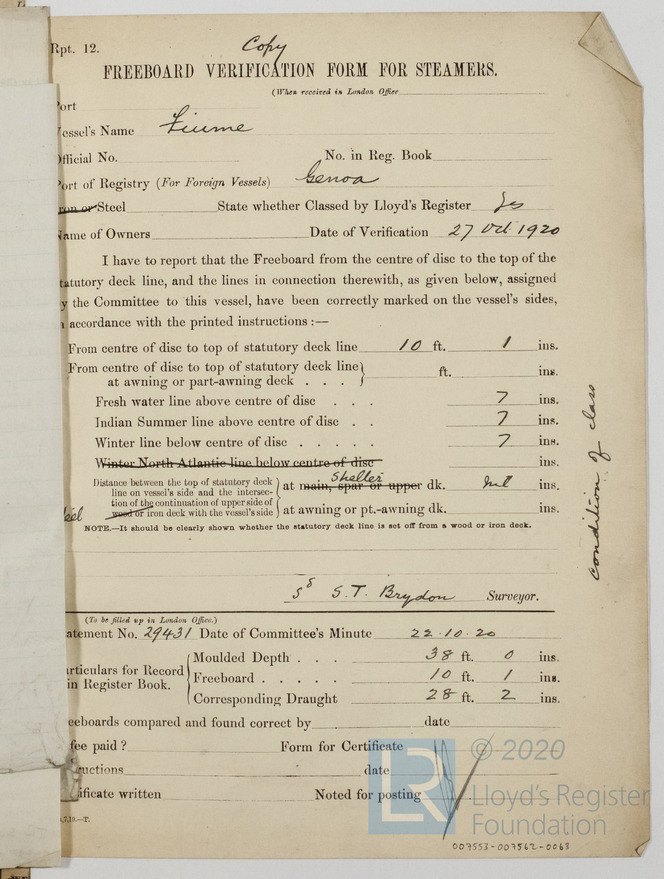 Rpt. 12.
Copy
FREEBOARD VERIFICATION FORM FOR STEAMERS.
(When received in London Office
Port
Vessel's Name Fiume
Official No. No. in Reg. Book
Port of Registry (For Foreign Vessels) Genoa
Iron or Steel State whether Classed by Lloyd's Register Yes
Name of Owners Date of Verification 27 Oct 1920
I have to report that the Freeboard from the centre of disc to the top of the
statutory deck line, and the lines in connection therewith, as given below, assigned
by the Committee to this vessel, have been correctly marked on the vessel's sides,
in accordance with the printed instructions :—
From centre of disc to top of statutory deck line 10 ft. 1 ins.
From centre of disc to top of statutory deck line
at awning or part-awning deck . . . ft. ins.
Fresh water line above centre of disc . . . 7 ins.
Indian Summer line above centre of disc . . 7 ins.
Winter line below centre of disc . . . . . 7 ins.
Winter North Atlantic line below centre of disc ins.
Distance between the top of statutory deck
line on vessel's side and the intersec-
tion of the continuation of upper side of
wood or iron deck with the vessel's side
Shelter
at main, spar or upper dk. nil ins.
at awning or pt.-awning dk. ins.
eel
NOTE.—It should be clearly shown whether the statutory deck line is set off from a wood or iron deck.
condition of class
Sd S. T. Brydon Surveyor.
(To be filled up in London Office.)
atement No. 29431 Date of Committee's Minute 22.10.20
articulars for Record
in Register Book.
Moulded Depth . . . 38 ft. 0 ins.
Freeboard . . . . . 10 ft. 1 ins.
Corresponding Draught 28 ft. 2 ins.
eeboards compared and found correct by date
fee paid ? Form for Certificate
uctions date
ificate written Noted for posting
.7,19.—T.
LR
© 2020
Lloyd's Register
Foundation
007553-007562-0068